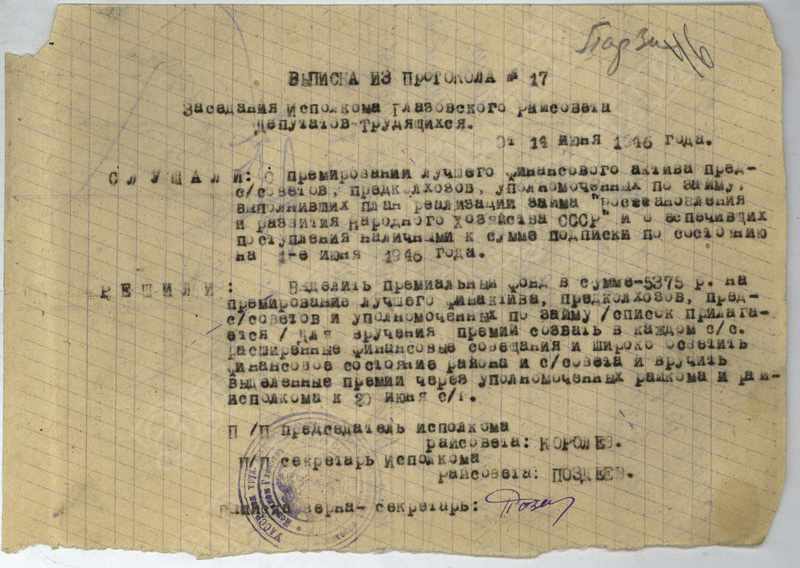 Парзи
ВЫПИСКА ИЗ ПРОТОКОЛА № 17
Заседания Исполкома Глазовского райсовета
Депутатов-Трудящихся.
От 14 июня 1946 года.
СЛУШАЛИ: О премировании лучшего финансового актива пред-
с/советов, предколхозов, уполномоченных по займу,
выполнивших план реализации займа "восстановления
и развития Народного Хозяйства СССР" и о
поступления наличными к сумме подписки по состоянию
на 1-е июня 1946 года.
РЕШИЛИ: Выделить премиальный фонд в сумме-5375 р. на
премирование лучшего финактива, предколхозов, пред-
с/советов и уполномоченных по займу /список прилага-
ется/ Для вручения премий созвать в каждом с/с.
расширенные финансовые совещания и широко осветить
финансовое состояние района и с/совета и вручить
выделенные премии через уполномоченных райкома и рай-
исполкома к 20 июня с/г.
П/П председатель исполкома
райсовета: КОРОЛЕВ.
П/П секретарь Исполкома
райсовета: ПОЗДЕЕВ.
верна- секретарь: